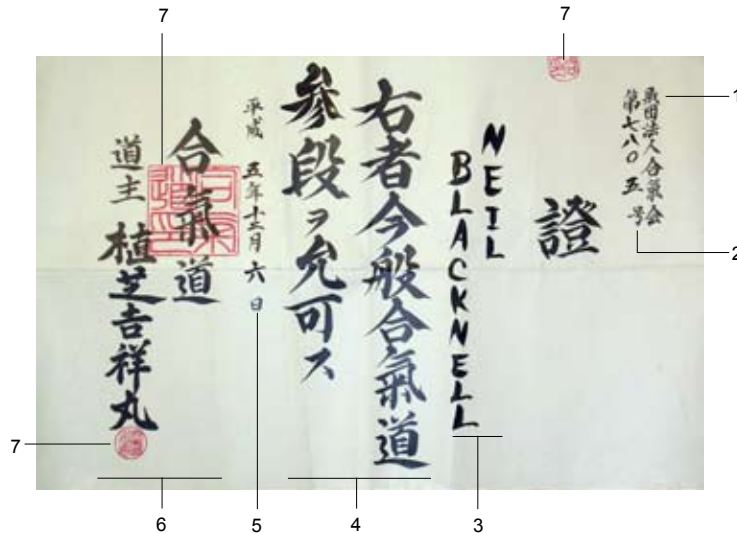 7
7
1
財団法人合氣会
第七八〇五号
2
證
NEIL
BLACKNELL
3
右者今般合氣道
參段ヲ允可ス
4
平成 五年十二月 六日
5
合氣道
道主 植芝吉祥丸
7
6